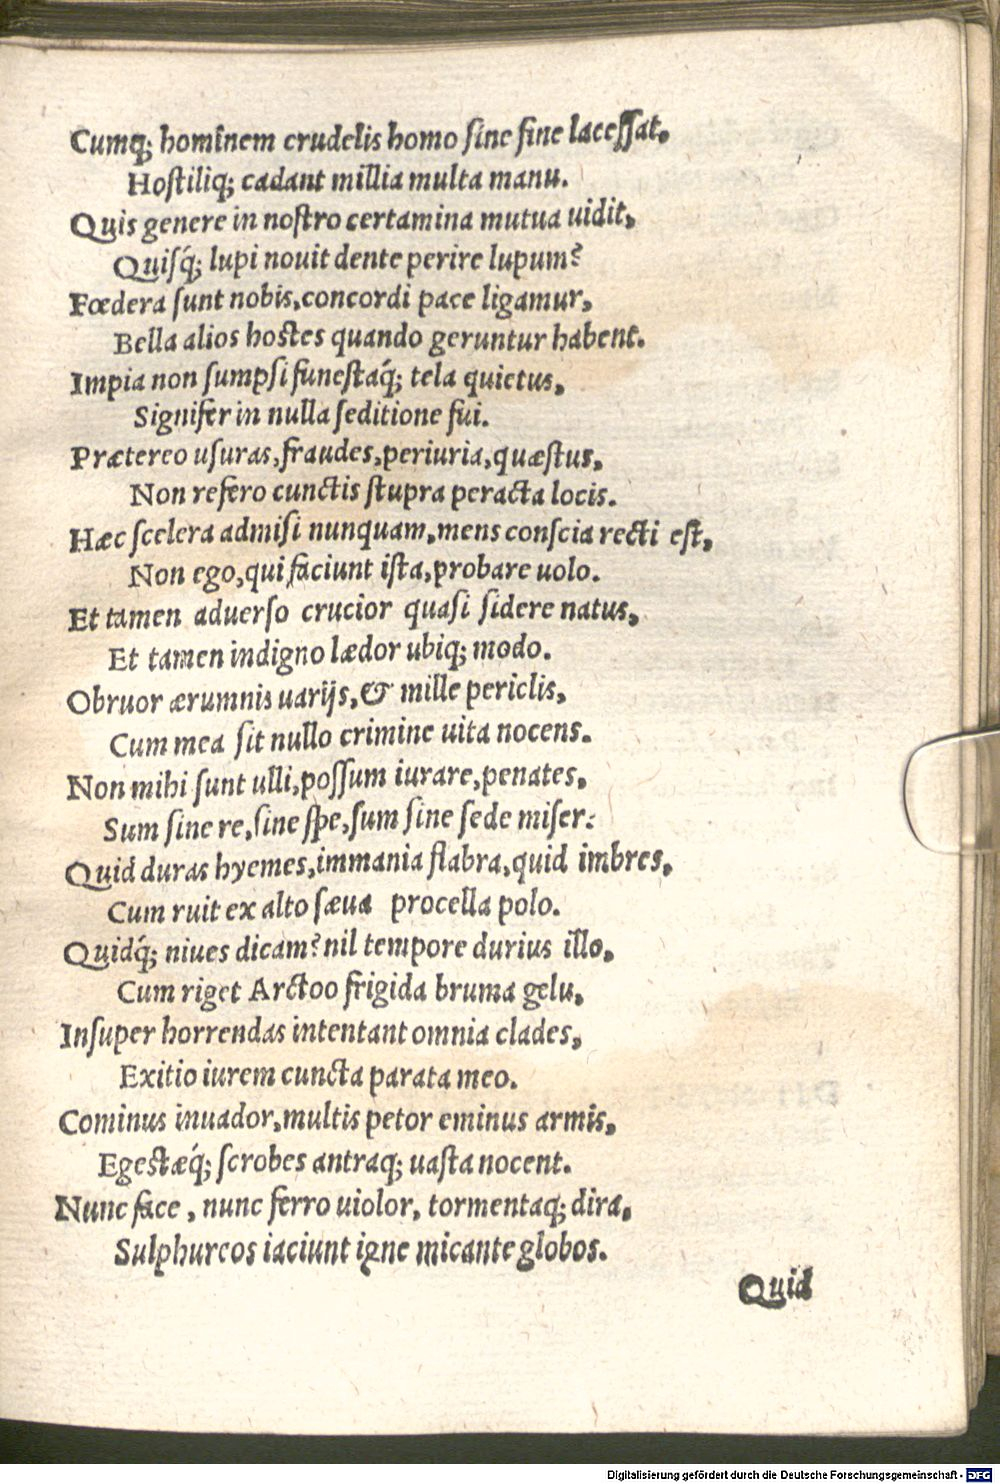 Cumq; hominem crudelis homo sine fine lacessat.
Hostiliq; cadant millia multa manu.
Quis genere in nostro certamina mutua uidit,
Quisq́; lupi nouit dente perire lupum?
Fœdera sunt nobis, concordi pace ligamur,
Bella alios hostes quando geruntur habent.
Impia non sumpsi funestaq́; tela quietus,
Signifer in nulla seditione fui.
Prætereo usuras, fraudes, periuria, quæstus,
Non refero cunctis stupra peracta locis.
Hæc scelera admisi nunquam, mens conscia recti est,
Non ego, qui faciunt ista, probare uolo.
Et tamen aduerso crucior quasi sidere natus,
Et tamen indigno lædor ubiq; modo.
Obruor ærumnis uarijs, & mille periclis,
Cum mea sit nullo crimine uita nocens.
Non mihi sunt ulli, possum iurare, penates,
Sum sine re, sine spe, sum sine sede miser:
Quid duras hyemes, immania flabra, quid imbres,
Cum ruit ex alto sæua procella polo.
Quidq́; niues dicam? nil tempore durius illo,
Cum riget Arctoo frigida bruma gelu,
Insuper horrendas intentant omnia clades,
Exitio iurem cuncta parata meo.
Cominus inuador, multis petor eminus armis,
Egestæq́; scrobes antraq; uasta nocent.
Nunc face, nunc ferro uiolor, tormentaq; dira,
Sulphureos iaciunt igne micante globos.
Quid
Digitalisierung gefördert durch die Deutsche Forschungsgemeinschaft - DFG